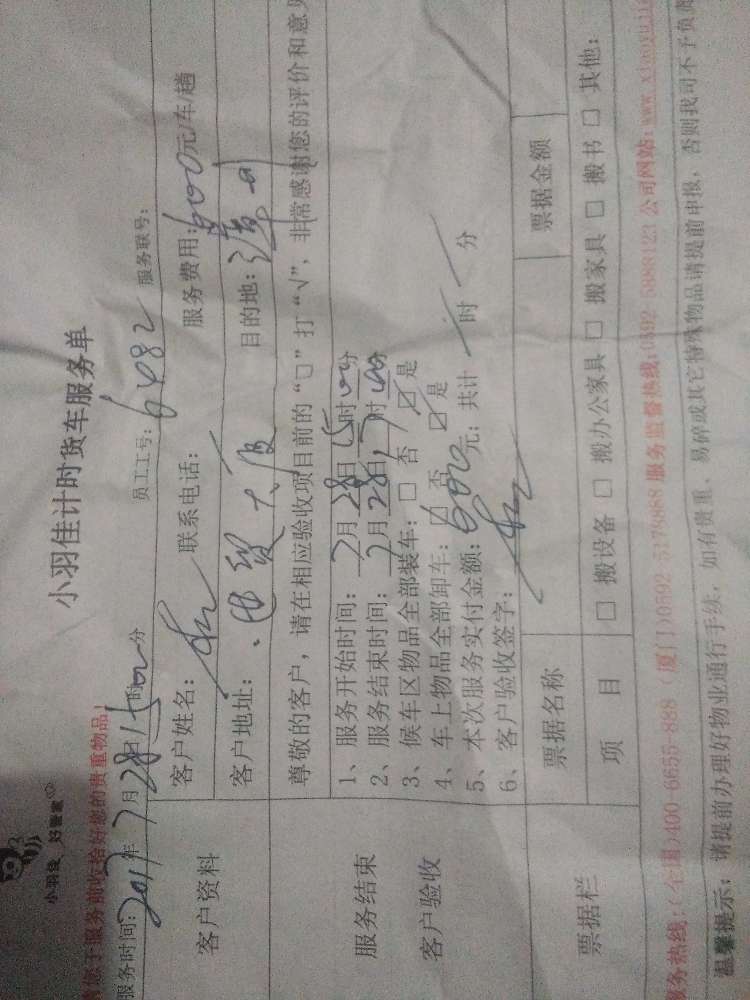 小羽佳 好管家
小羽佳计时货车服务单
请您于服务前收拾好您的贵重物品！
服务时间：2017年7月28日15时00分 员工工号：6482 服务联号：
客户资料
客户姓名： 联系电话： 服务费用：600元/车/趟
客户地址： 贸大厦 目的地：
服务结束
客户验收
尊敬的客户，请在相应验收项目前的“□”打“√”，非常感谢您的评价和意见
1、服务开始时间：7月28日15时00分
2、服务结束时间：7月28日17时00分
3、候车区物品全部装车：□ 否 ☑ 是
4、车上物品全部卸车：□ 否 ☑ 是
5、本次服务实付金额：600元；共计 时 分
6、客户验收签字：
票据栏
票据名称 票据金额
项 目 □ 搬设备 □ 搬办公家具 □ 搬家具 □ 搬书 □ 其他：
服务热线：（全国）400-6655-888 （厦门）0592-5178988 服务监督热线：0592-5888123 公司网站：www.xiaoyujia
温馨提示：请提前办理好物业通行手续，如有贵重、易碎或其它特殊物品请提前申报，否则我司不予负责